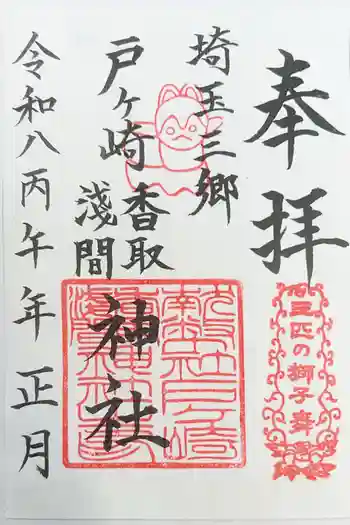 奉拝
三匹の獅子舞
埼玉三郷
戸ヶ崎
香取
淺間
神社
令和八丙午年正月